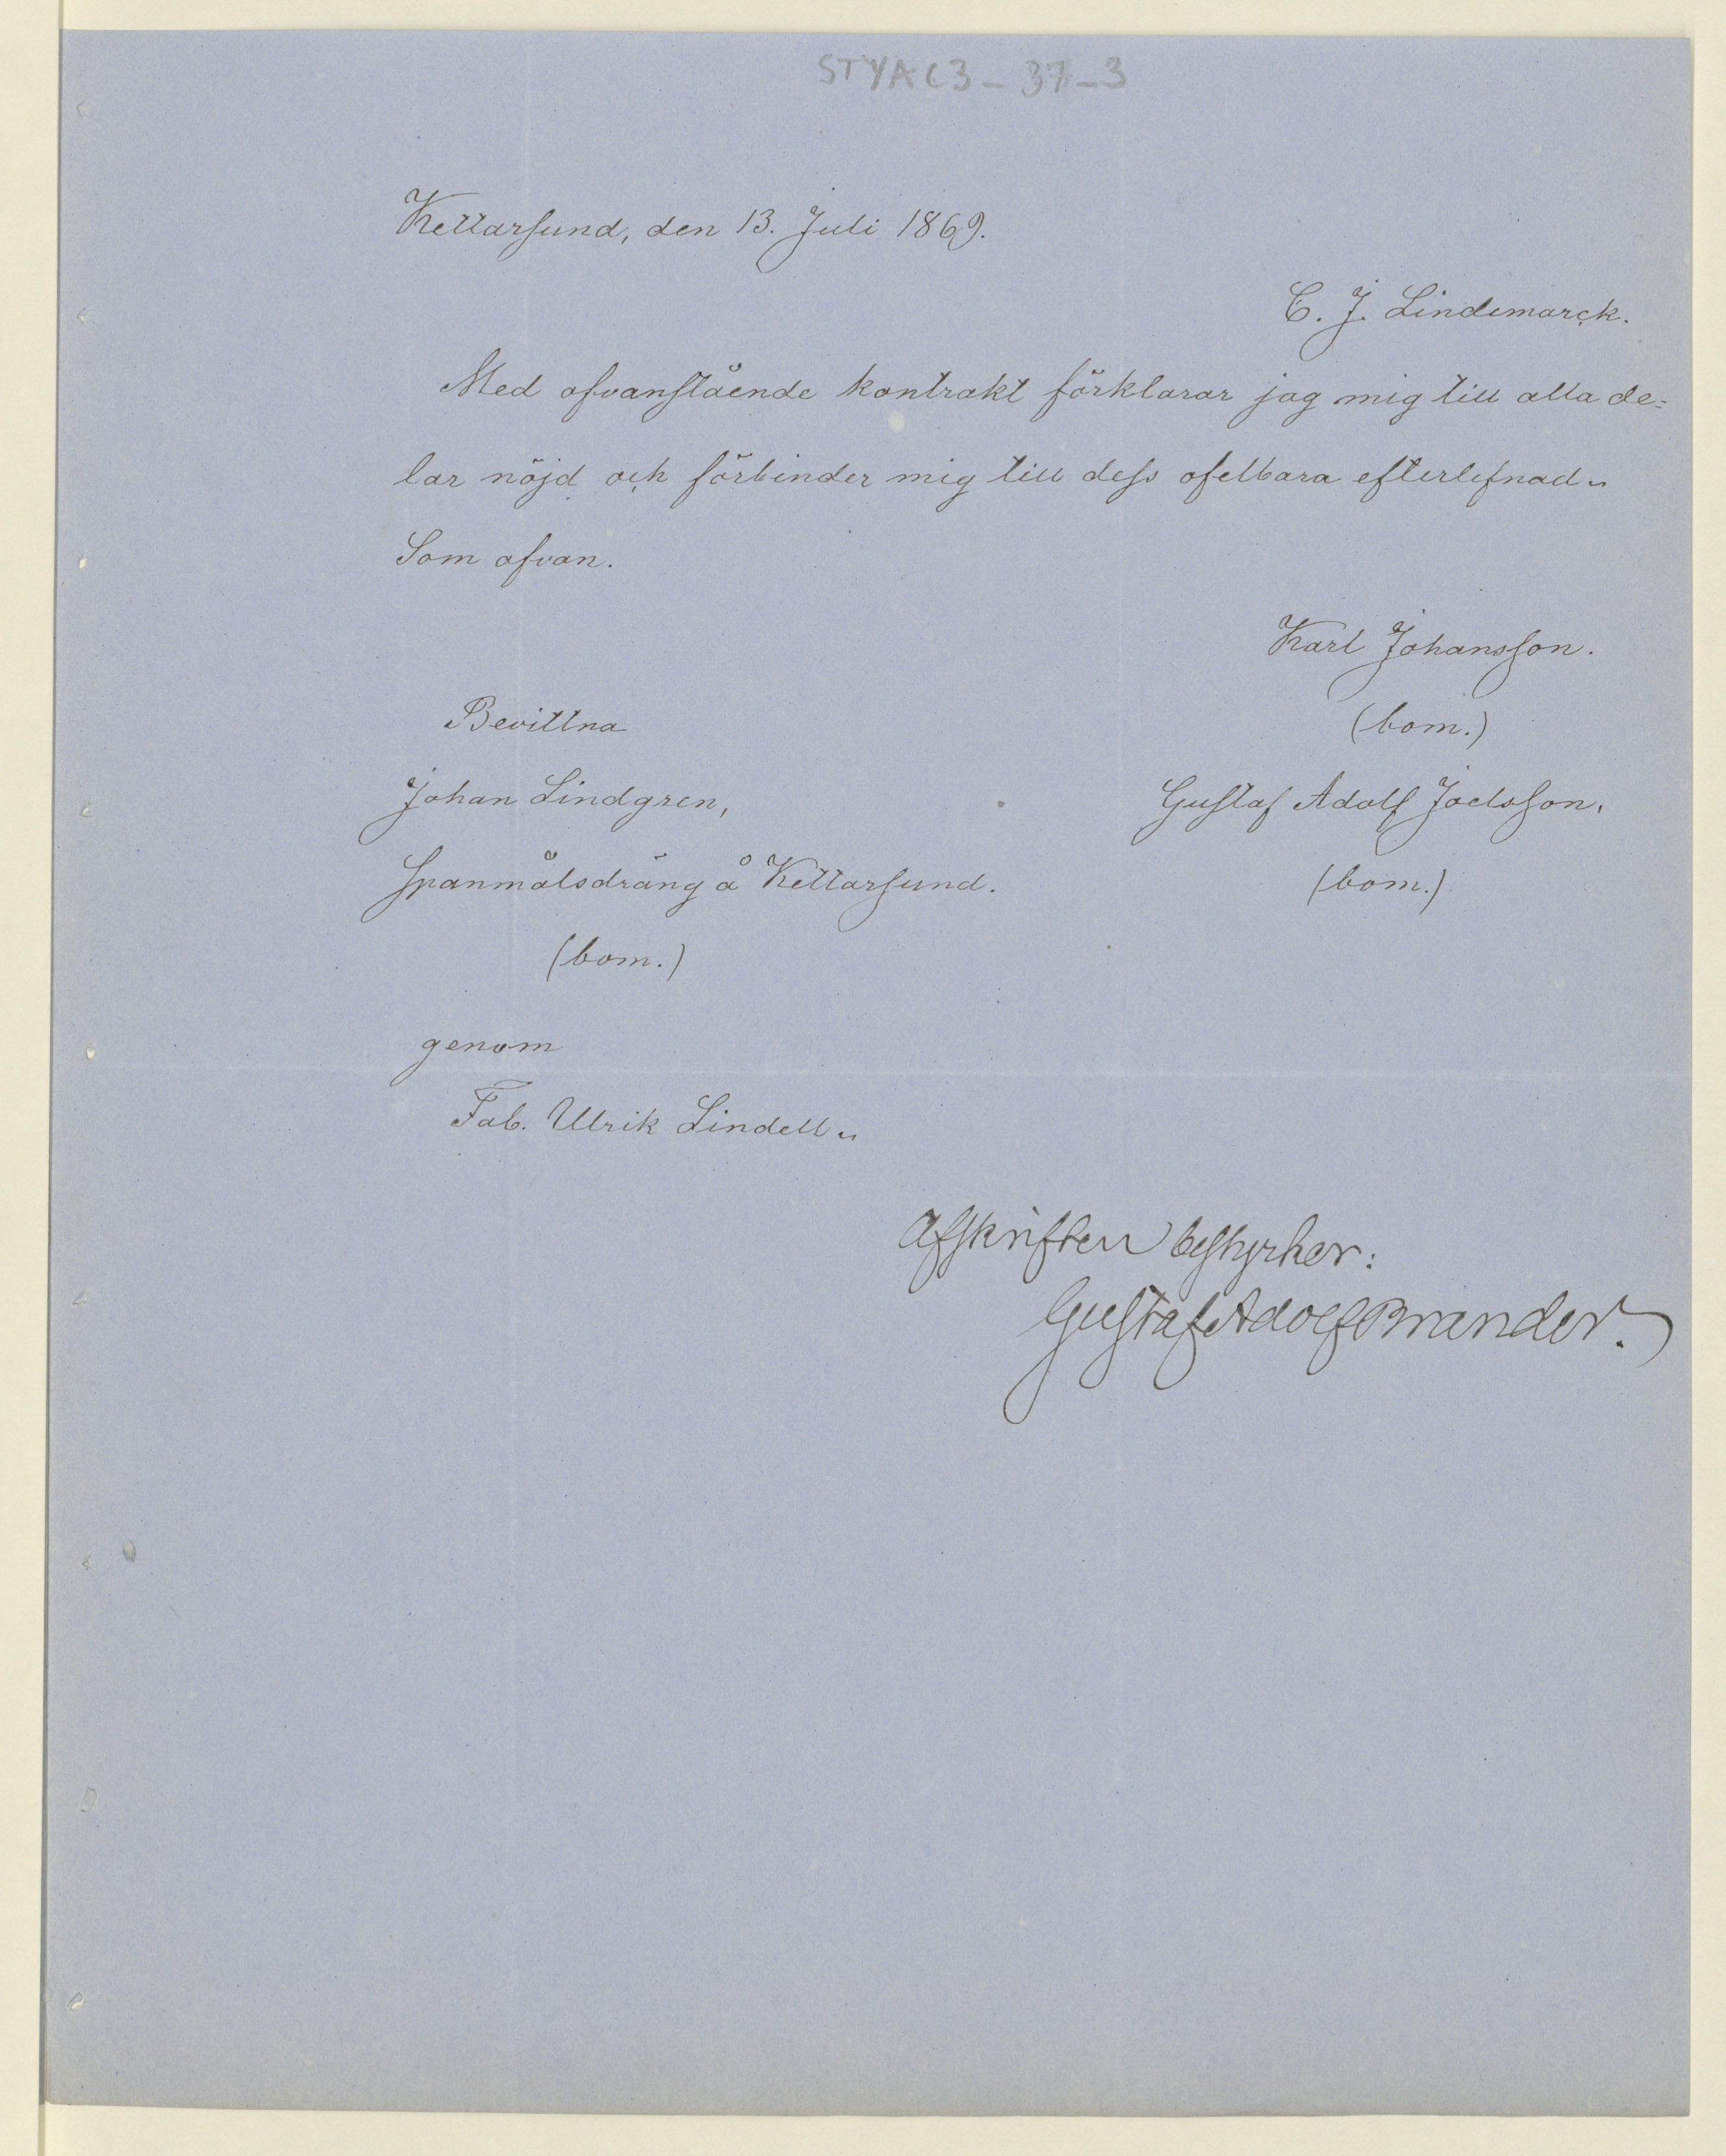 STYAC3-37-3
Kettarsund, den 13. Juli 1869.
C. J. Lindemarck.
Med ofvanstående kontrakt förklarar jag mig till alla de=
lar nöjd och förbinder mig till dess ofelbara efterlefnad
Som ofvan.
Karl Johansson.
Bevittna
(bom.)
Johan Lindgren,
Gustaf Adolf Joelsson.
Spanmålsdräng å Kettarsund.
(bom.)
(bom.)
genom
Fab. Ulrik Lindell
Afskriften bestyrker:
Gustaf Adolf Brander.